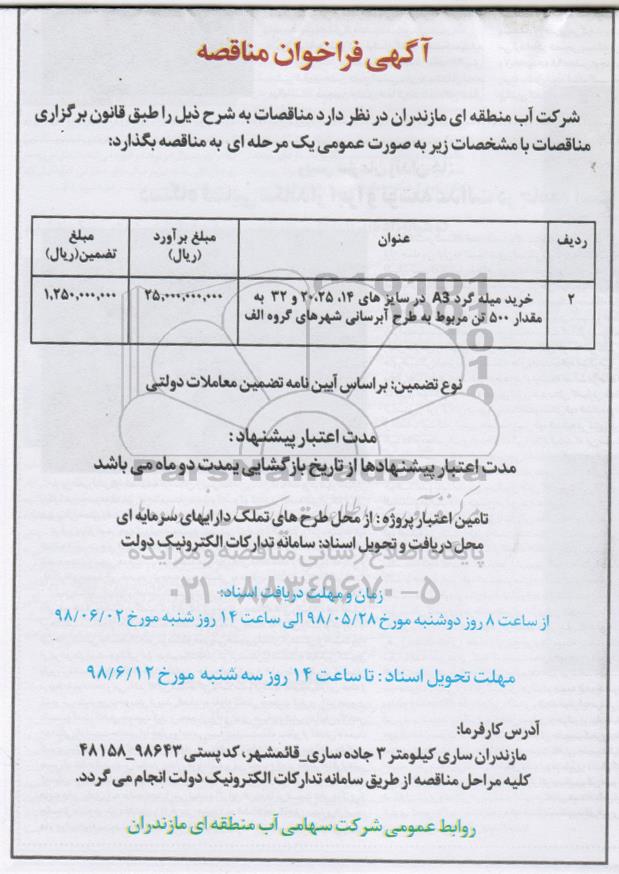 آگهی فراخوان مناقصه
شرکت آب منطقه ای مازندران در نظر دارد مناقصات به شرح ذیل را طبق قانون برگزاری
مناقصات با مشخصات زیر به صورت عمومی یک مرحله ای به مناقصه بگذارد:
ردیف
عنوان
مبلغ برآورد
(ریال)
مبلغ
تضمین(ریال)
۲
خرید میله گرد A3 در سایز های ۱۴، ۲۰،۲۵ و ۳۲ به
مقدار ۵۰۰ تن مربوط به طرح آبرسانی شهرهای گروه الف
۲۵,۰۰۰,۰۰۰,۰۰۰
۱,۲۵۰,۰۰۰,۰۰۰
نوع تضمین: براساس آیین نامه تضمین معاملات دولتی
مدت اعتبار پیشنهاد:
مدت اعتبار پیشنهادها از تاریخ بازگشایی بمدت دو ماه می باشد
ParsNamadData
تامین اعتبار پروژه: از محل طرح های تملک دارایهای سرمایه ای
محل دریافت و تحویل اسناد: سامانه تدارکات الکترونیک دولت
پایگاه اطلاع رسانی مناقصه و مزایده
۰۲۱-۸۸۳۴۹۶۷۰-۵
زمان و مهلت دریافت اسناد:
از ساعت ۸ روز دوشنبه مورخ ۹۸/۰۵/۲۸ الی ساعت ۱۴ روز شنبه مورخ ۹۸/۰۶/۰۲
مهلت تحویل اسناد: تا ساعت ۱۴ روز سه شنبه مورخ ۹۸/۶/۱۲
آدرس کارفرما:
مازندران ساری کیلومتر ۳ جاده ساری_قائمشهر، کدپستی ۹۸۶۴۳_۴۸۱۵۸
کلیه مراحل مناقصه از طریق سامانه تدارکات الکترونیک دولت انجام می گردد.
روابط عمومی شرکت سهامی آب منطقه ای مازندران